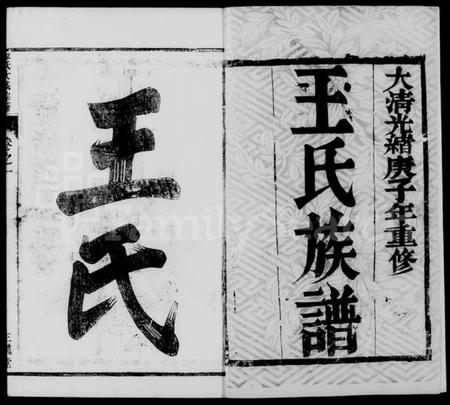 大清光緒庚子年重修
王氏族譜
王氏